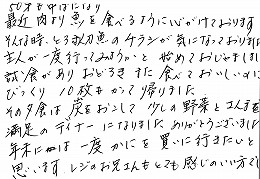 50才も中ばになり
最近 肉より魚を食べるように心がけております
そんな時、とろ太刀魚のチラシが気になっておりまし
主人が一度行ってみようかと 始めておじゃましまし
試食があり おどろきました 食べておいしいのに
びっくり 10枚もかって帰りました
その夕食は炭をおこして 少しの野菜とエんまを
満足のディナーになりました ありがとうございまし
年末には一度 かにを買いに行きたいと
思います。レジのお兄さんもとても感じのいい方で